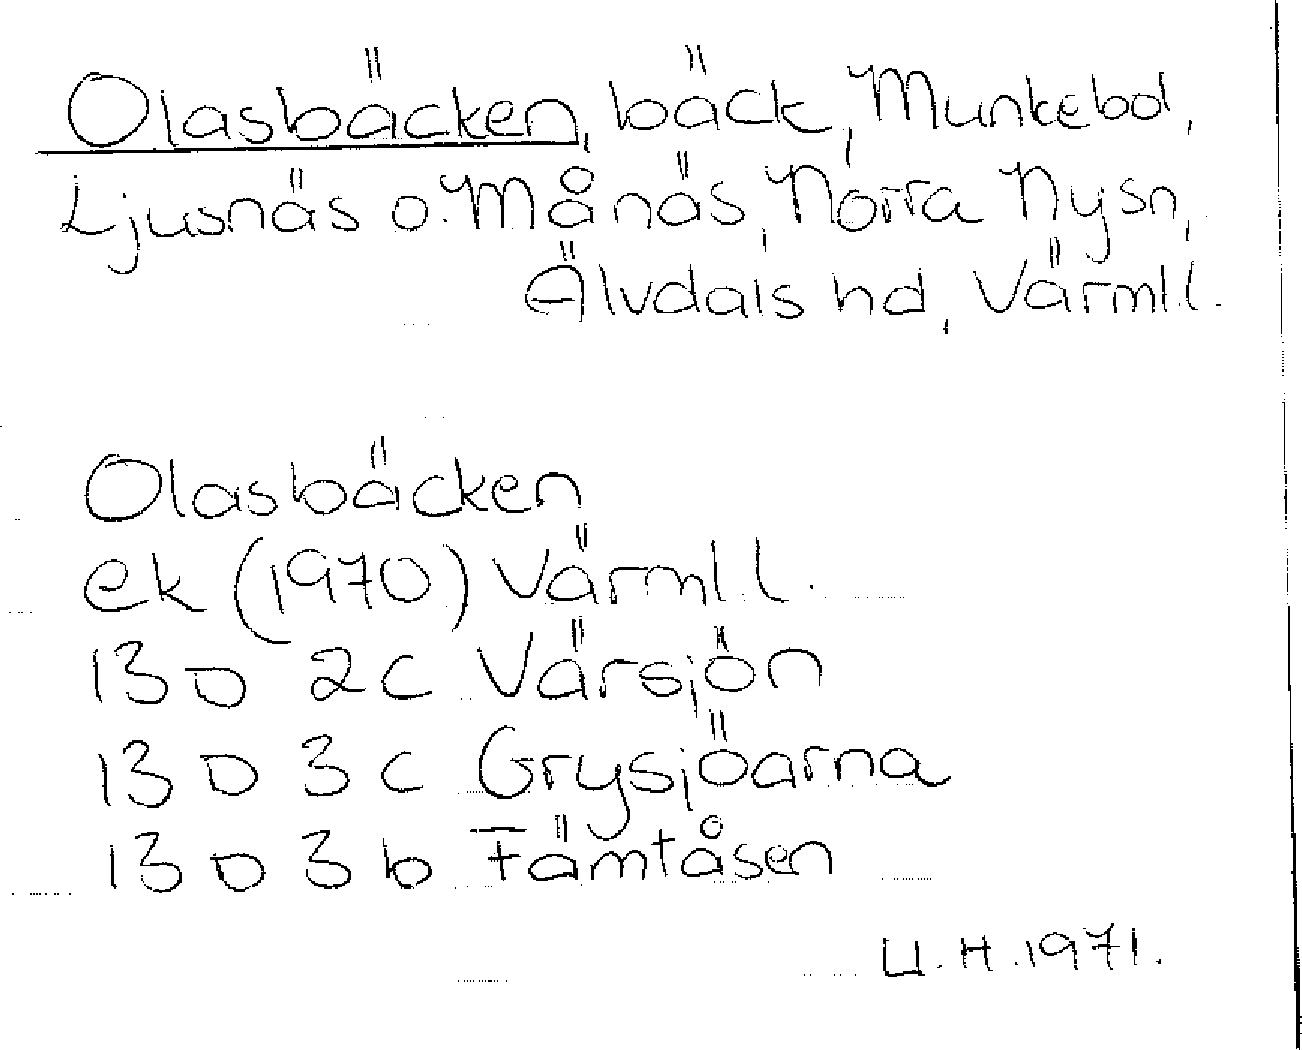 Olasbäcken, bäck, Munkebol,
Ljusnäs o. Månäs, Norra Nysn,
Älvdals hd, Värml.l.
Olasbäcken
ek (1970) Värml.l.
13 D 2 c Värsjön
13 D 3 c Grysjöarna
13 D 3 b Fämtåsen
U.H. 1971.